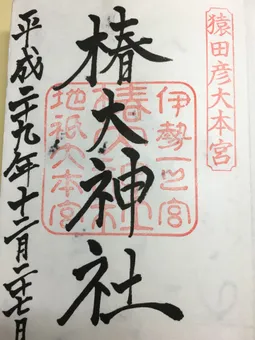 猿田彦大本宮
伊勢一之宮
地祇大本宮
椿大神社
平成二十九年十二月二十七日